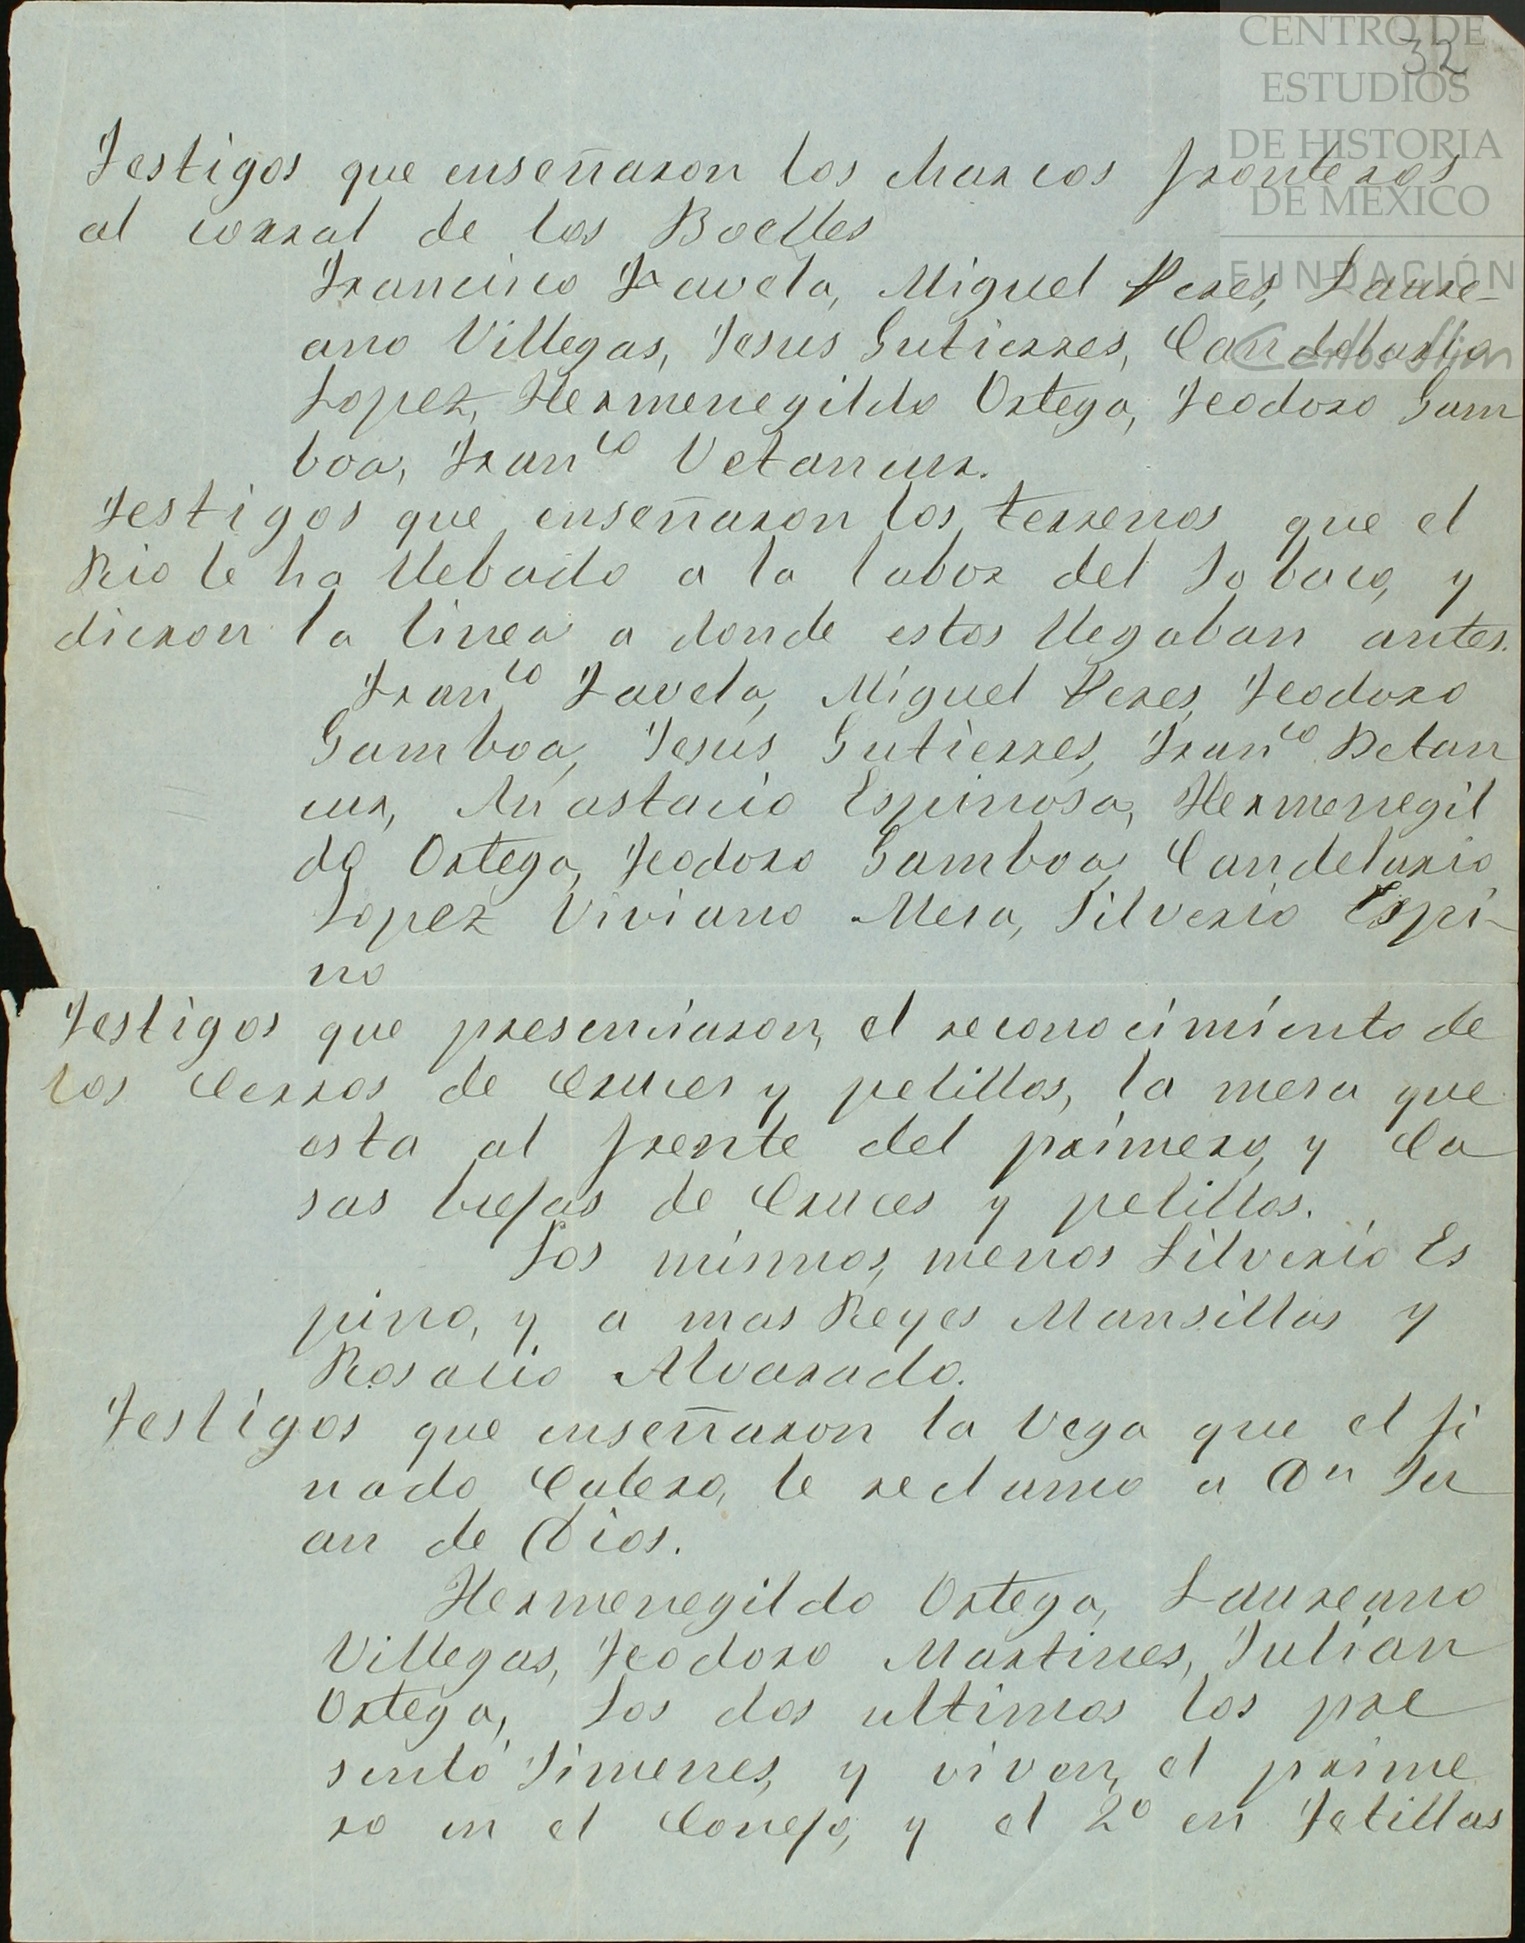 CENTRO DE
ESTUDIOS
DE HISTORIA
DE MEXICO
FUNDACIÓN
Carlos Slim
32
Testigos que enseñaron los charcos fronteros
al corral de los
Francisco Favela, Miguel Peres, Laure-
ano Villegas, Jesus Gutierres, Candelario
Lopez, Hermenegildo Ortega, Teodoro Gam
boa, Fran^co Vetancur.
Testigos que enseñaron los terrenos que el
Rio le ha llebado a la labor del Sobaco, y
dieron la linea a donde estos llegaban antes.
Fran^co Favela, Miguel Peres, Teodoro
Gamboa, Jesus Gutierres, Fran^co Betan
cur, Anastacio Espinosa, Hermenegil
do Ortega, Teodoro Gamboa, Candelario
Lopez Viviano Mesa, Silverio Espi-
no
Testigos que presenciaron, el reconocimiento de
los Cerros de Cruces y petillos, la mesa que
esta al frente del primero, y Ca
sas biejas de Cruces y petillos.
Los mismos, menos Silverio Es
pino, y a mas Reyes Mansillas y
Rosalio Alvarado.
Testigos que enseñaron la Vega que el fi
nado Calero, le reclamo a Dn Ju
an de Dios.
Hermenegildo Ortega, Laureano
Villegas, Teodoro Martines, Julian
Ortega, Los dos ultimos los pre
sentó Jimenes, y viven, el prime
ro en el Conejo, y el 2º en Tetillas